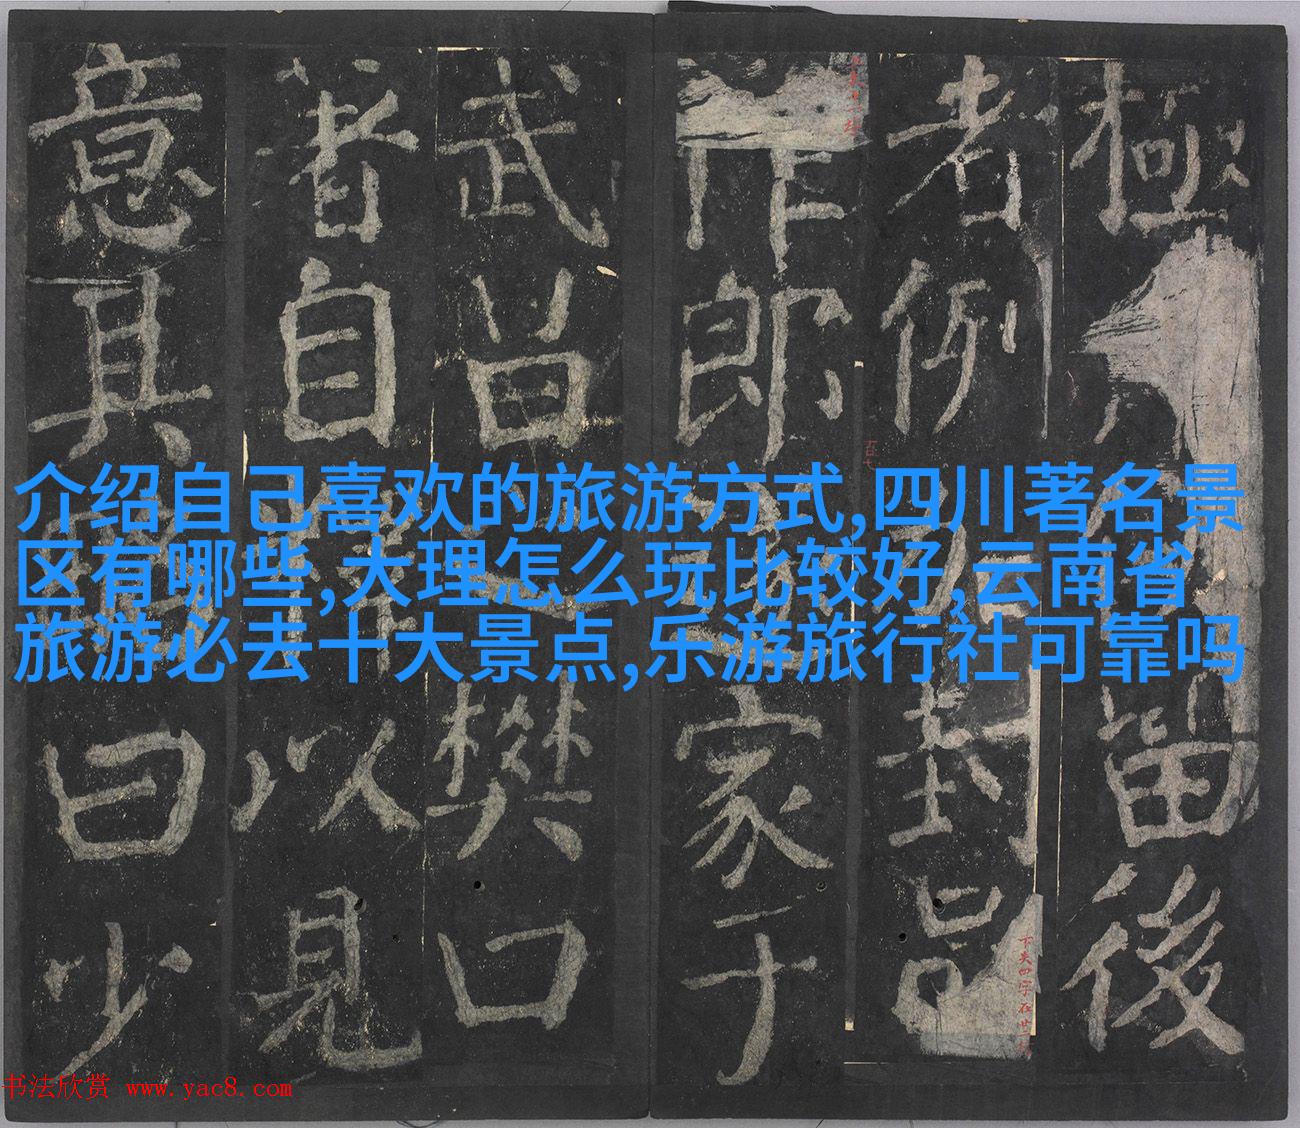 極留後
者例封邑
作郎家于
武昌樊口
著自以見
意其曰少
介绍自己喜欢的旅游方式,四川著名景
区有哪些,大理怎么玩比较好,云南省
旅游必去十大景点,乐游旅行社可靠吗
下失四字在廿
书法欣赏 www.yac8.com